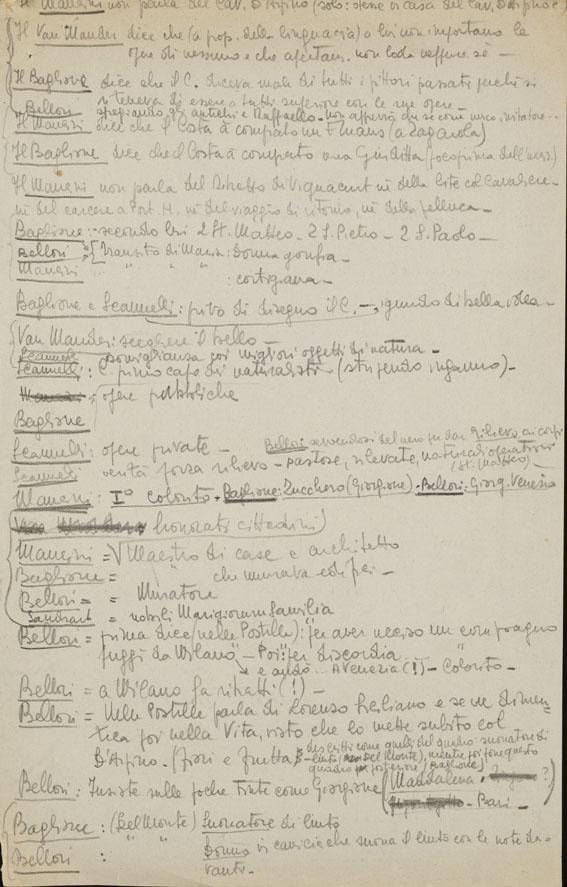 Il Mancini non parla del C. D'Arpino (solo: stesse in casa del Cav. D'Arpino)
Il Van Mander dice che (a prop. della linguaccia) a lui non importano le
opere di nessuno e che apertam. non loda neppure sè —
Il Baglione dice che il C. diceva male di tutti i pittori passati perchè si
riteneva di essere a tutti superiore con le sue opere —
Bellori spregiando gli antichi e Raffaello
Il Mancini dice che il Costa à comprato un Emaus (a Zagarola)
Il Baglione dice che il Costa à comprato una Giuditta
Il Mancini non parla del Ritratto di Vignacourt nè della lite col Cavaliere —
nè del carcere a Port. H. nè del viaggio di ritorno, nè della felluca —
Baglione: secondo lui 2 St. Matteo — 2 S. Pietro — 2 S. Paolo —
Bellori : Transito di Maria: Donna gonfia —
Mancini " " " : cortigiana —
Baglione e Scannelli: privo di disegno il C. —,
Van Mander: scegliere il bello —
Scannelli somiglianza coi migliori oggetti di natura —
Scannelli: C. primo capo dei naturalisti — (stupendo inganno) —
: opere pubbliche
Baglione
Scannelli: opere private —
Bellori servendosi del nero per dar rilievo ai corpi
Scannelli verità forza rilievo — pastose, rilevate, naturali
(St. Matteo)
Mancini: I° colorito • Baglione: Zucchero (Giorgione) • Bellori: Giorg. Venezia
(honorati cittadini)
Mancini = Maestro di case e architetto
Baglione = " che murava edifici —
Bellori = = Muratore
Sandrart = nobili familia
Bellori = prima dice (nelle Postille): per aver ucciso un compagno
fuggì da Milano — Poi: per discordia...
e andò... a Venezia (!) — Colorito —
Bellori = a Milano fa ritratti (!) —
Bellori = Nelle Postille parla di Lorenzo Siciliano e se ne dimen
tica poi nella Vita, visto che lo mette subito col
D'Arpino — (fiori e frutta descritti come quelli del quadro suonatore di
liuto del Monte), mentre poi pone questo
quadro posteriore (Baglione)
Bellori: Insiste sulle poche tinte come Giorgione (Maddalena, ?)
Bari —
Baglione: (Del Monte) Suonatore di liuto
Bellori : " " Donna in camicia che suona il liuto con le note da-
vanti —